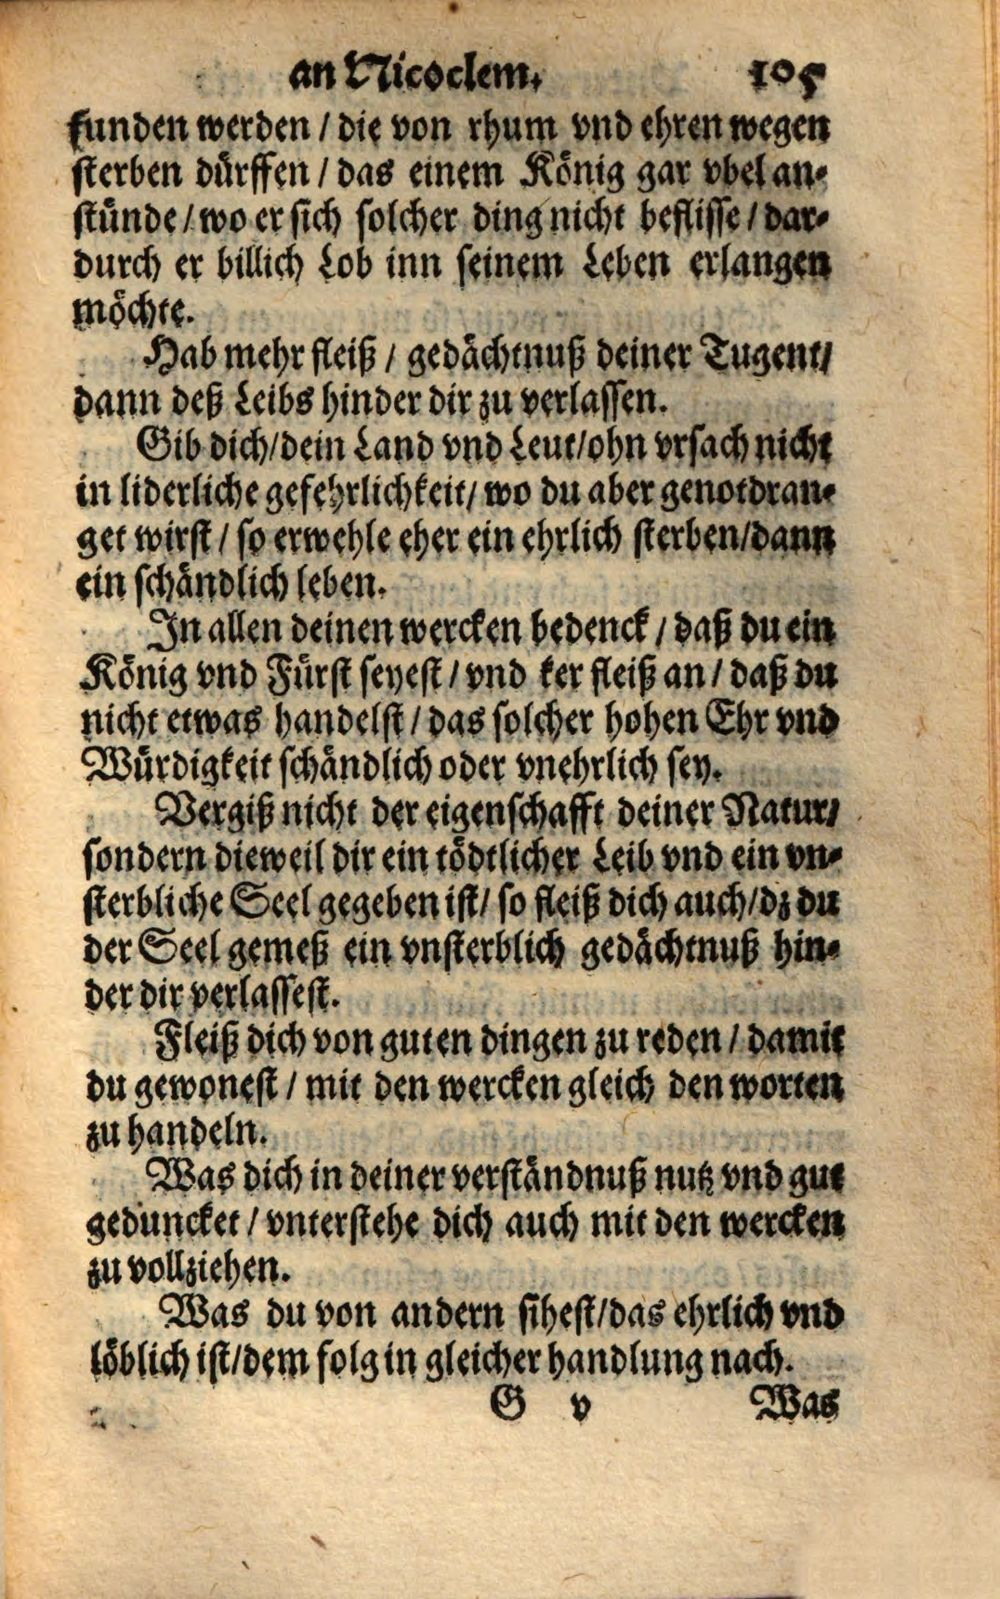 an Nicoclem. 105
funden werden / die von rhum vnd ehren wegen
sterben dürffen / das einem König gar vbel an-
stünde / wo er sich solcher ding nicht beflisse / dar-
durch er billich Lob inn seinem Leben erlangen
möchte.
Hab mehr fleiß / gedächtnuß deiner Tugent/
dann deß Leibs hinder dir zu verlassen.
Gib dich/dein Land vnd Leut/ohn vrsach nicht
in liderliche gefehrlichkeit/ wo du aber genotdran-
get wirst / so erwehle eher ein ehrlich sterben/dann
ein schändlich leben.
In allen deinen wercken bedenck / daß du ein
König vnd Fürst seyest / vnd ker fleiß an / daß du
nicht etwas handelst / das solcher hohen Ehr vnd
Würdigkeit schändlich oder vnehrlich sey.
Vergiß nicht der eigenschafft deiner Natur/
sondern dieweil dir ein tödtlicher Leib vnd ein vn-
sterbliche Seel gegeben ist/ so fleiß dich auch/dz du
der Seel gemeß ein vnsterblich gedächtnuß hin-
der dir verlassest.
Fleiß dich von guten dingen zu reden / damit
du gewonest / mit den wercken gleich den worten
zu handeln.
Was dich in deiner verständnuß nutz vnd gut
geduncket / vnterstehe dich auch mit den wercken
zu vollziehen.
Was du von andern sihest/das ehrlich vnd
löblich ist/dem folg in gleicher handlung nach.
G v Was